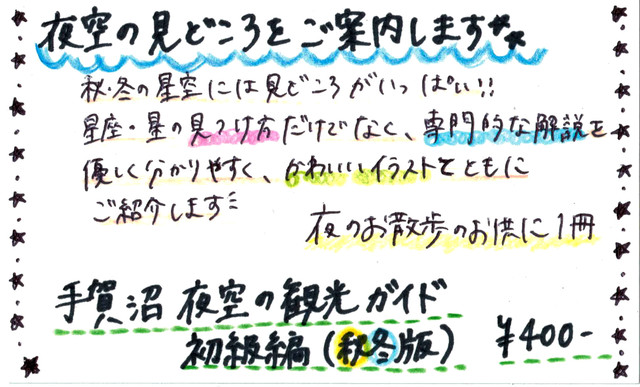 夜空の見どころをご案内します★★
秋・冬の星空には見どころがいっぱい!!
星座・星の見つけ方だけでなく、専門的な解説を
優しく分かりやすく、かわいいイラストとともに
ご紹介します
夜のお散歩のお供に1冊
手賀沼 夜空の観光ガイド
初級編(秋冬版) ¥400-